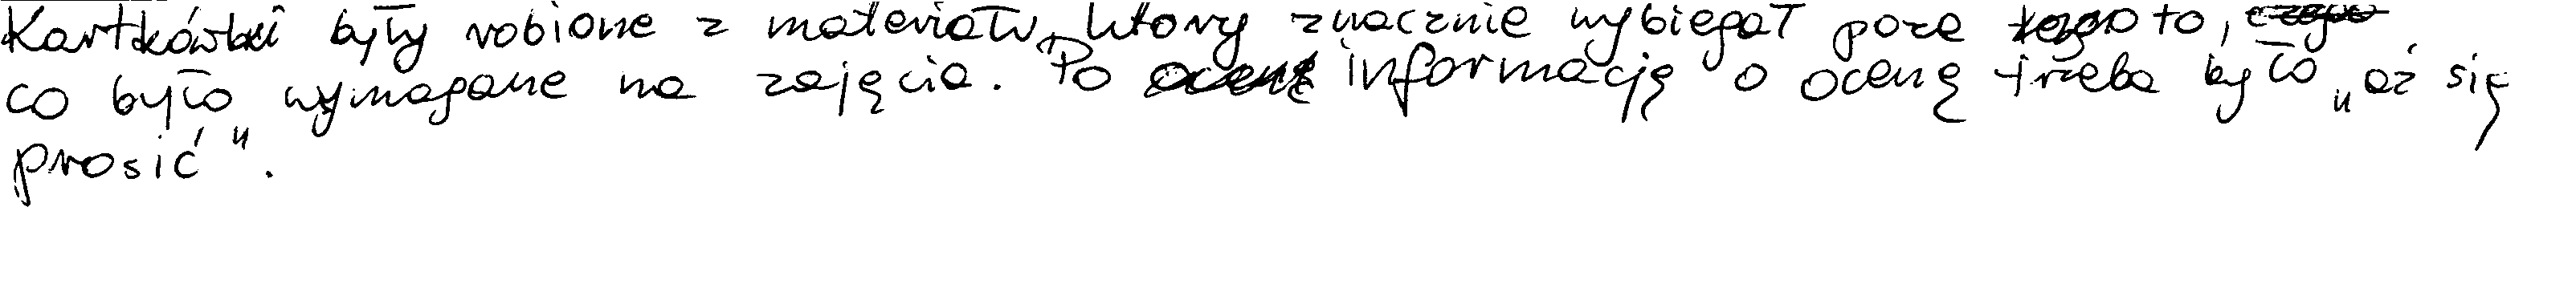 Kartkówki były robione z materiału, który znacznie wybiegał poza to,
co było wymagane na zajęcia. Po informację o ocenę trzeba było „aż się
prosić".